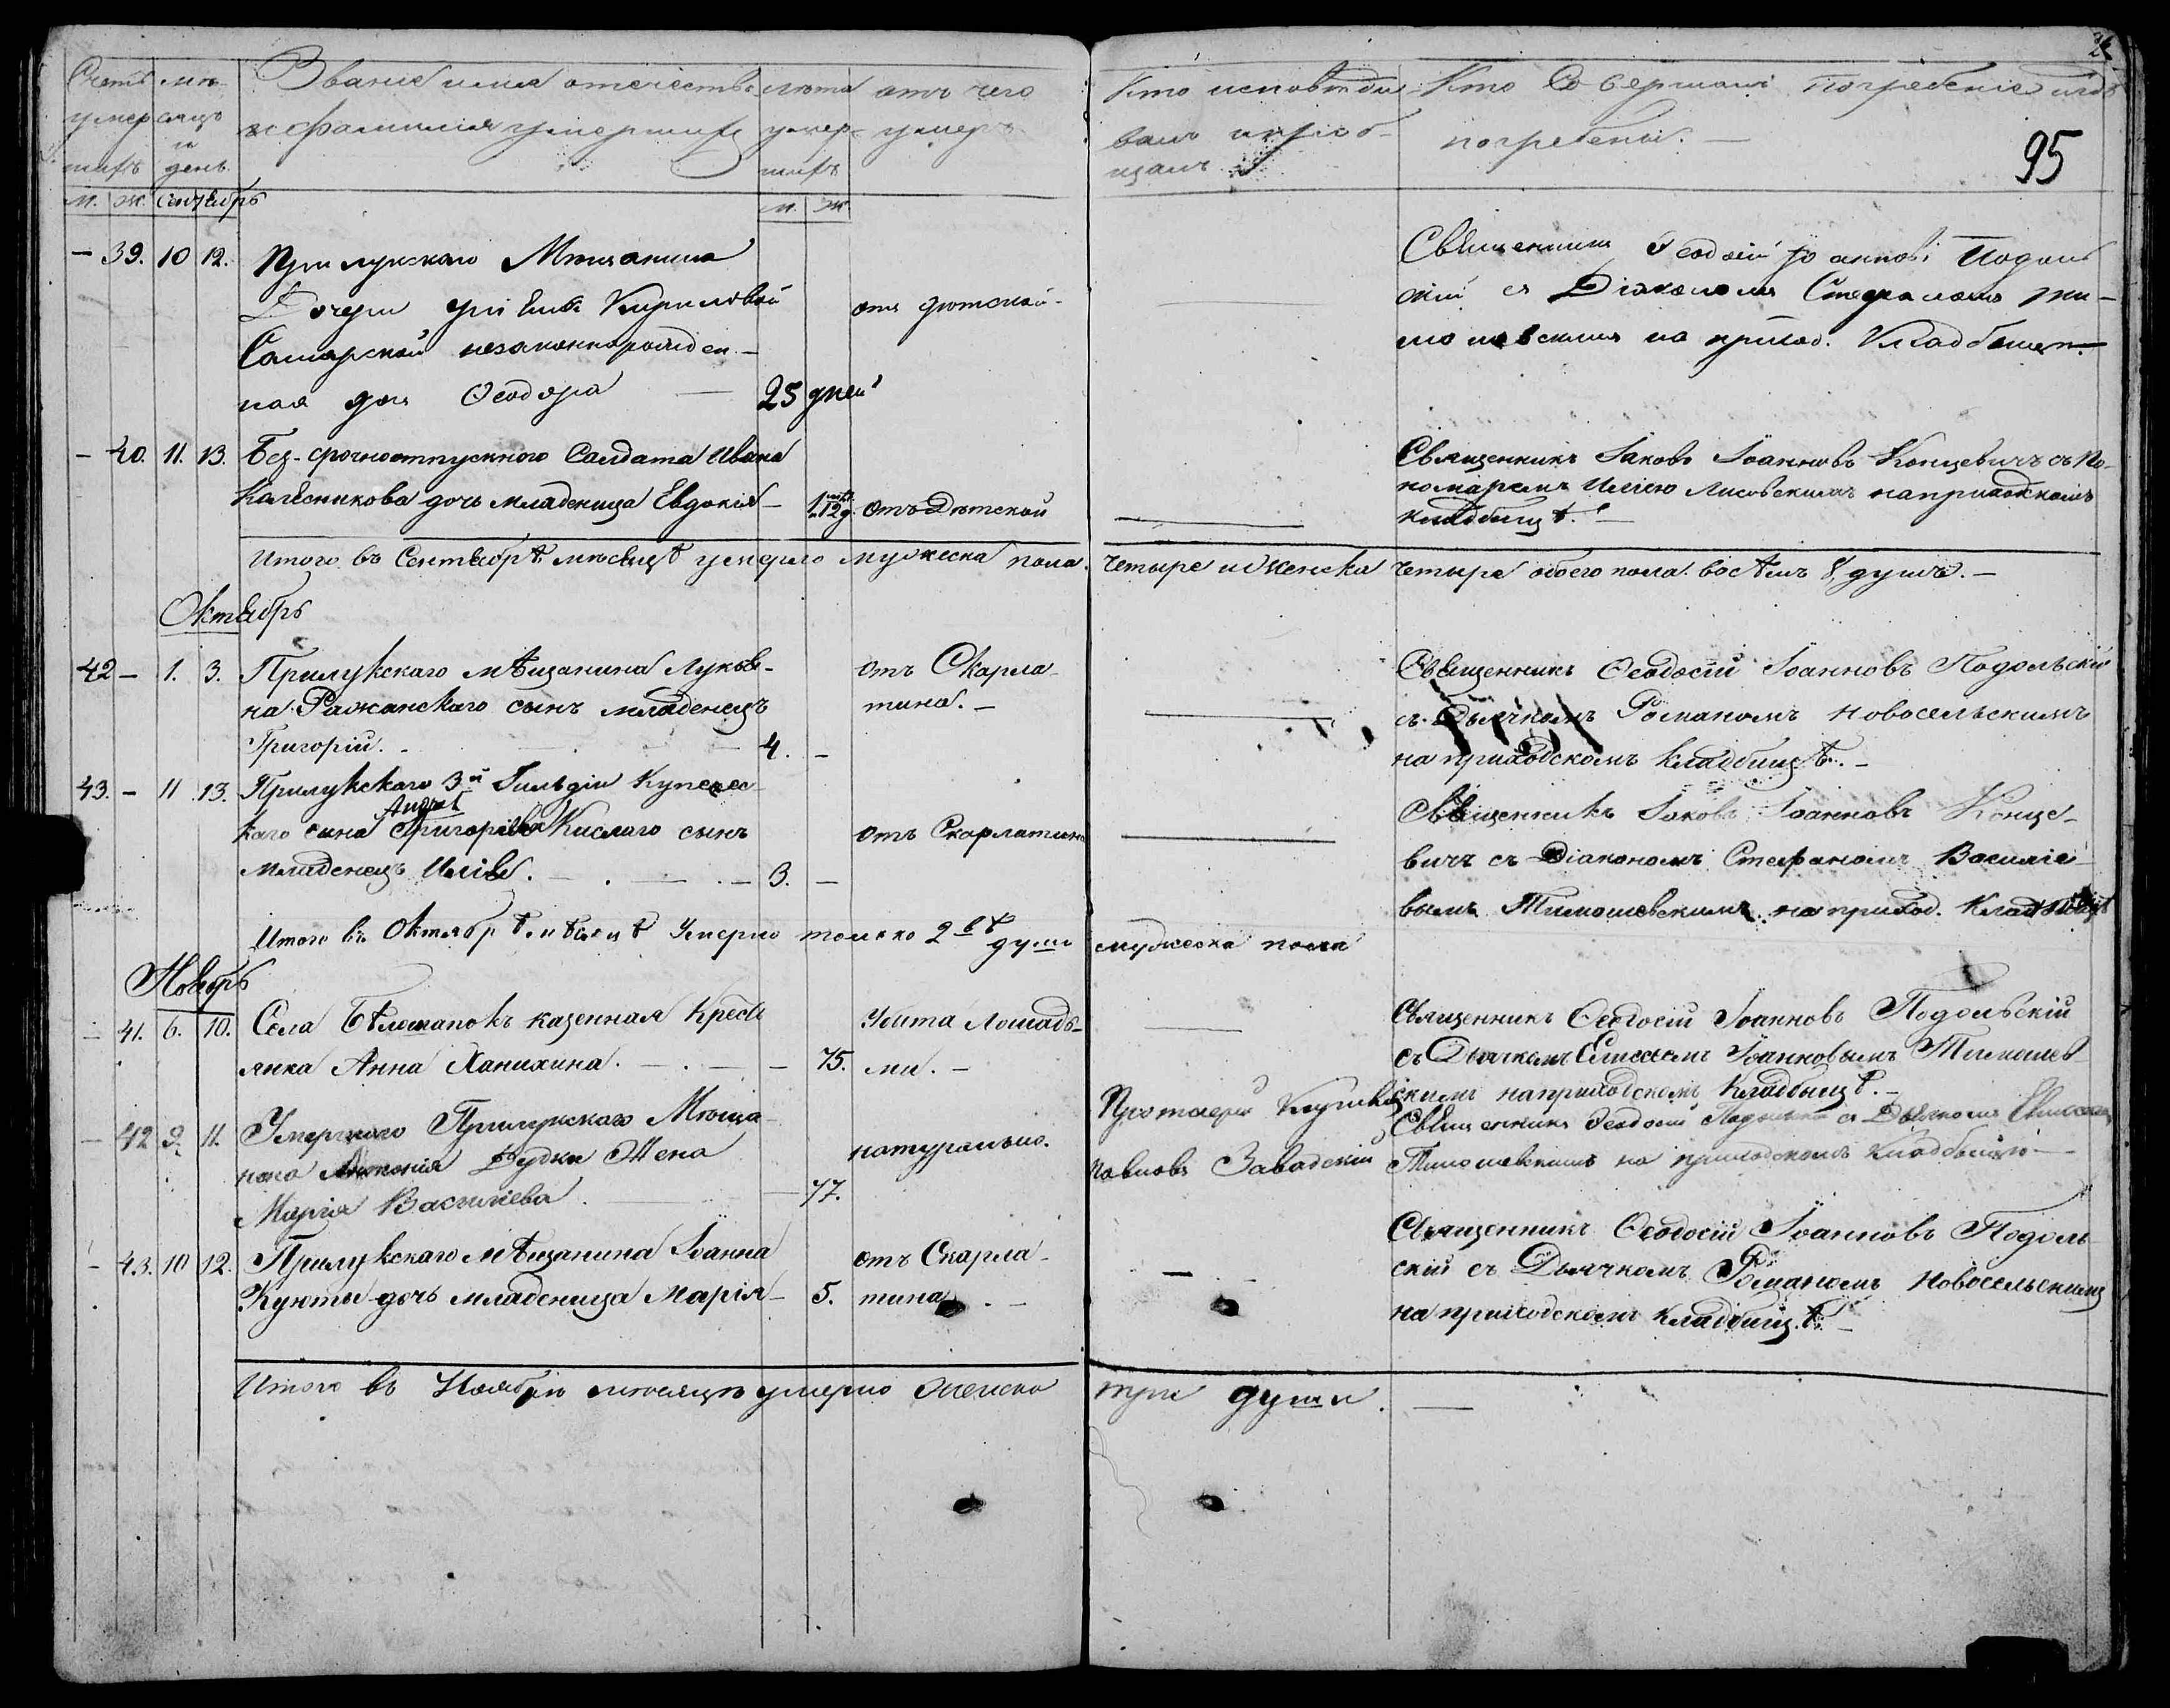 26
95
Счетъ умер шихъ
мѣ сяцъ и день
Званіе имя отечество и фамилія умершихъ
лѣта умер шихъ
отъ чего умеръ
Кто исповѣды валъ и пріоб щалъ
Кто Совершалъ погребеніе и гдѣ погребены. —
м. ж. Сентябрь
м. ж.
— 39. 10 12. Прилукскаго Мѣщанина
Дочери Кириловой отъ дѣтской
незаконнорожден-
ная дочь Ѳеодора — 25 дней
Священникъ Ѳеодосій Іоанновъ Подоль
скій съ Діакономъ Стефаномъ Ти-
мошевскимъ на приход. Кладбищѣ
— 40. 11. 13. Без-срочноотпускного Салдата Ивана
Калесникова дочь младеница Евдокія — 1 м. и 12 д. отъ Дѣтской
Священникъ Іаковъ Іоанновъ Концевичъ съ По-
номаремъ Иліею Лисовскимъ на приходскомъ
кладбищѣ. —
Итого въ Сентябрѣ мѣсяцѣ умерло мужеска пола четыре и женска четыре обоего пола восѣмь 8, душъ. —
Октябрь
42 — 1. 3. Прилукскаго мѣщанина Лукья-
на Ражанскаго сынъ младенецъ
Григорій. — 4. —
отъ Скарла-
тина. —
Священникъ Ѳеодосій Іоанновъ Подольскій
съ Дьячкомъ Романомъ Новосельскимъ
на приходскомъ кладбищѣ. —
43. — 11. 13. Прилукскаго 3й Гильдіи Купечес-
Андрея
каго сына Григоріева Кислаго сынъ
младенецъ Илія. — 3. —
отъ Скарлатина
Священникъ Іаковъ Іоанновъ Конце-
вичъ съ Діакономъ Стефаномъ Василіе-
вымъ Тимошевскимъ на приход. кладбищѣ
Итого въ Октябрѣ мѣсяцѣ Умерло только 2вѣ души мужеска пола
Ноябрь
— 41. 6. 10. Села Бѣлошапокъ казенная Кресть
янка Анна Ханихина. — 75.
Убита Лошадь-
ми. —
Священникъ Ѳеодосій Іоанновъ Подольскій
съ Дьячкомъ Елисеемъ Іоанновымъ Тимошев
скимъ на приходскомъ Кладбищѣ. —
— 42 9. 11. Умершаго Прилукскаго Мѣща-
нина Антонія Дудки Жена
Марія Васильева. — 77.
натурально.
Протоіерей
Павловъ Завадскій
Священникъ Ѳеодосій Подольскій съ Дьячкомъ Елисеемъ
Тимошевскимъ на приходскомъ Кладбищѣ —
— 43. 10 12. Прилукскаго мѣщанина Іоанна
Куюты дочь младеница Марія — 5.
отъ Скарла-
тина. —
Священникъ Ѳеодосій Іоанновъ Подоль
скій съ Дьячкомъ Романомъ Новосельскимъ
на приходскомъ кладбищѣ. —
Итого въ Ноябрѣ мѣсяцѣ умерло женска три души. —